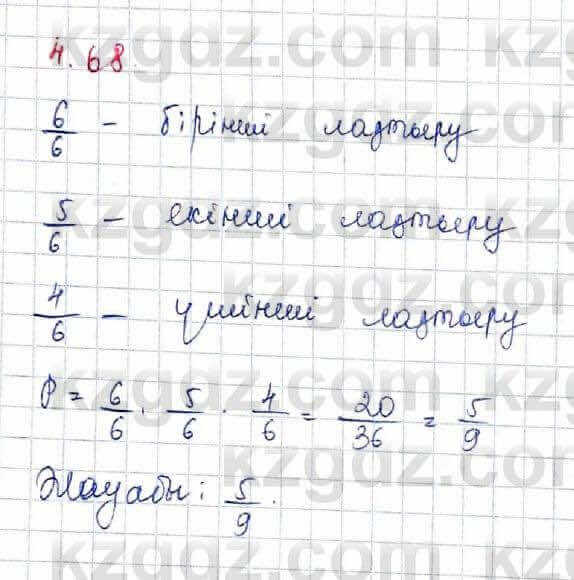 4.68.
6/6 - бірінші лақтыру
5/6 - екінші лақтыру
4/6 - үшінші лақтыру
P = 6/6 · 5/6 · 4/6 = 20/36 = 5/9
Жауабы: 5/9.
kzgdz.com